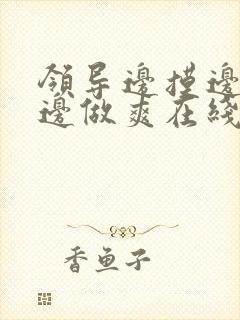 領导邊摸邊
邊做爽在綫
香鱼子